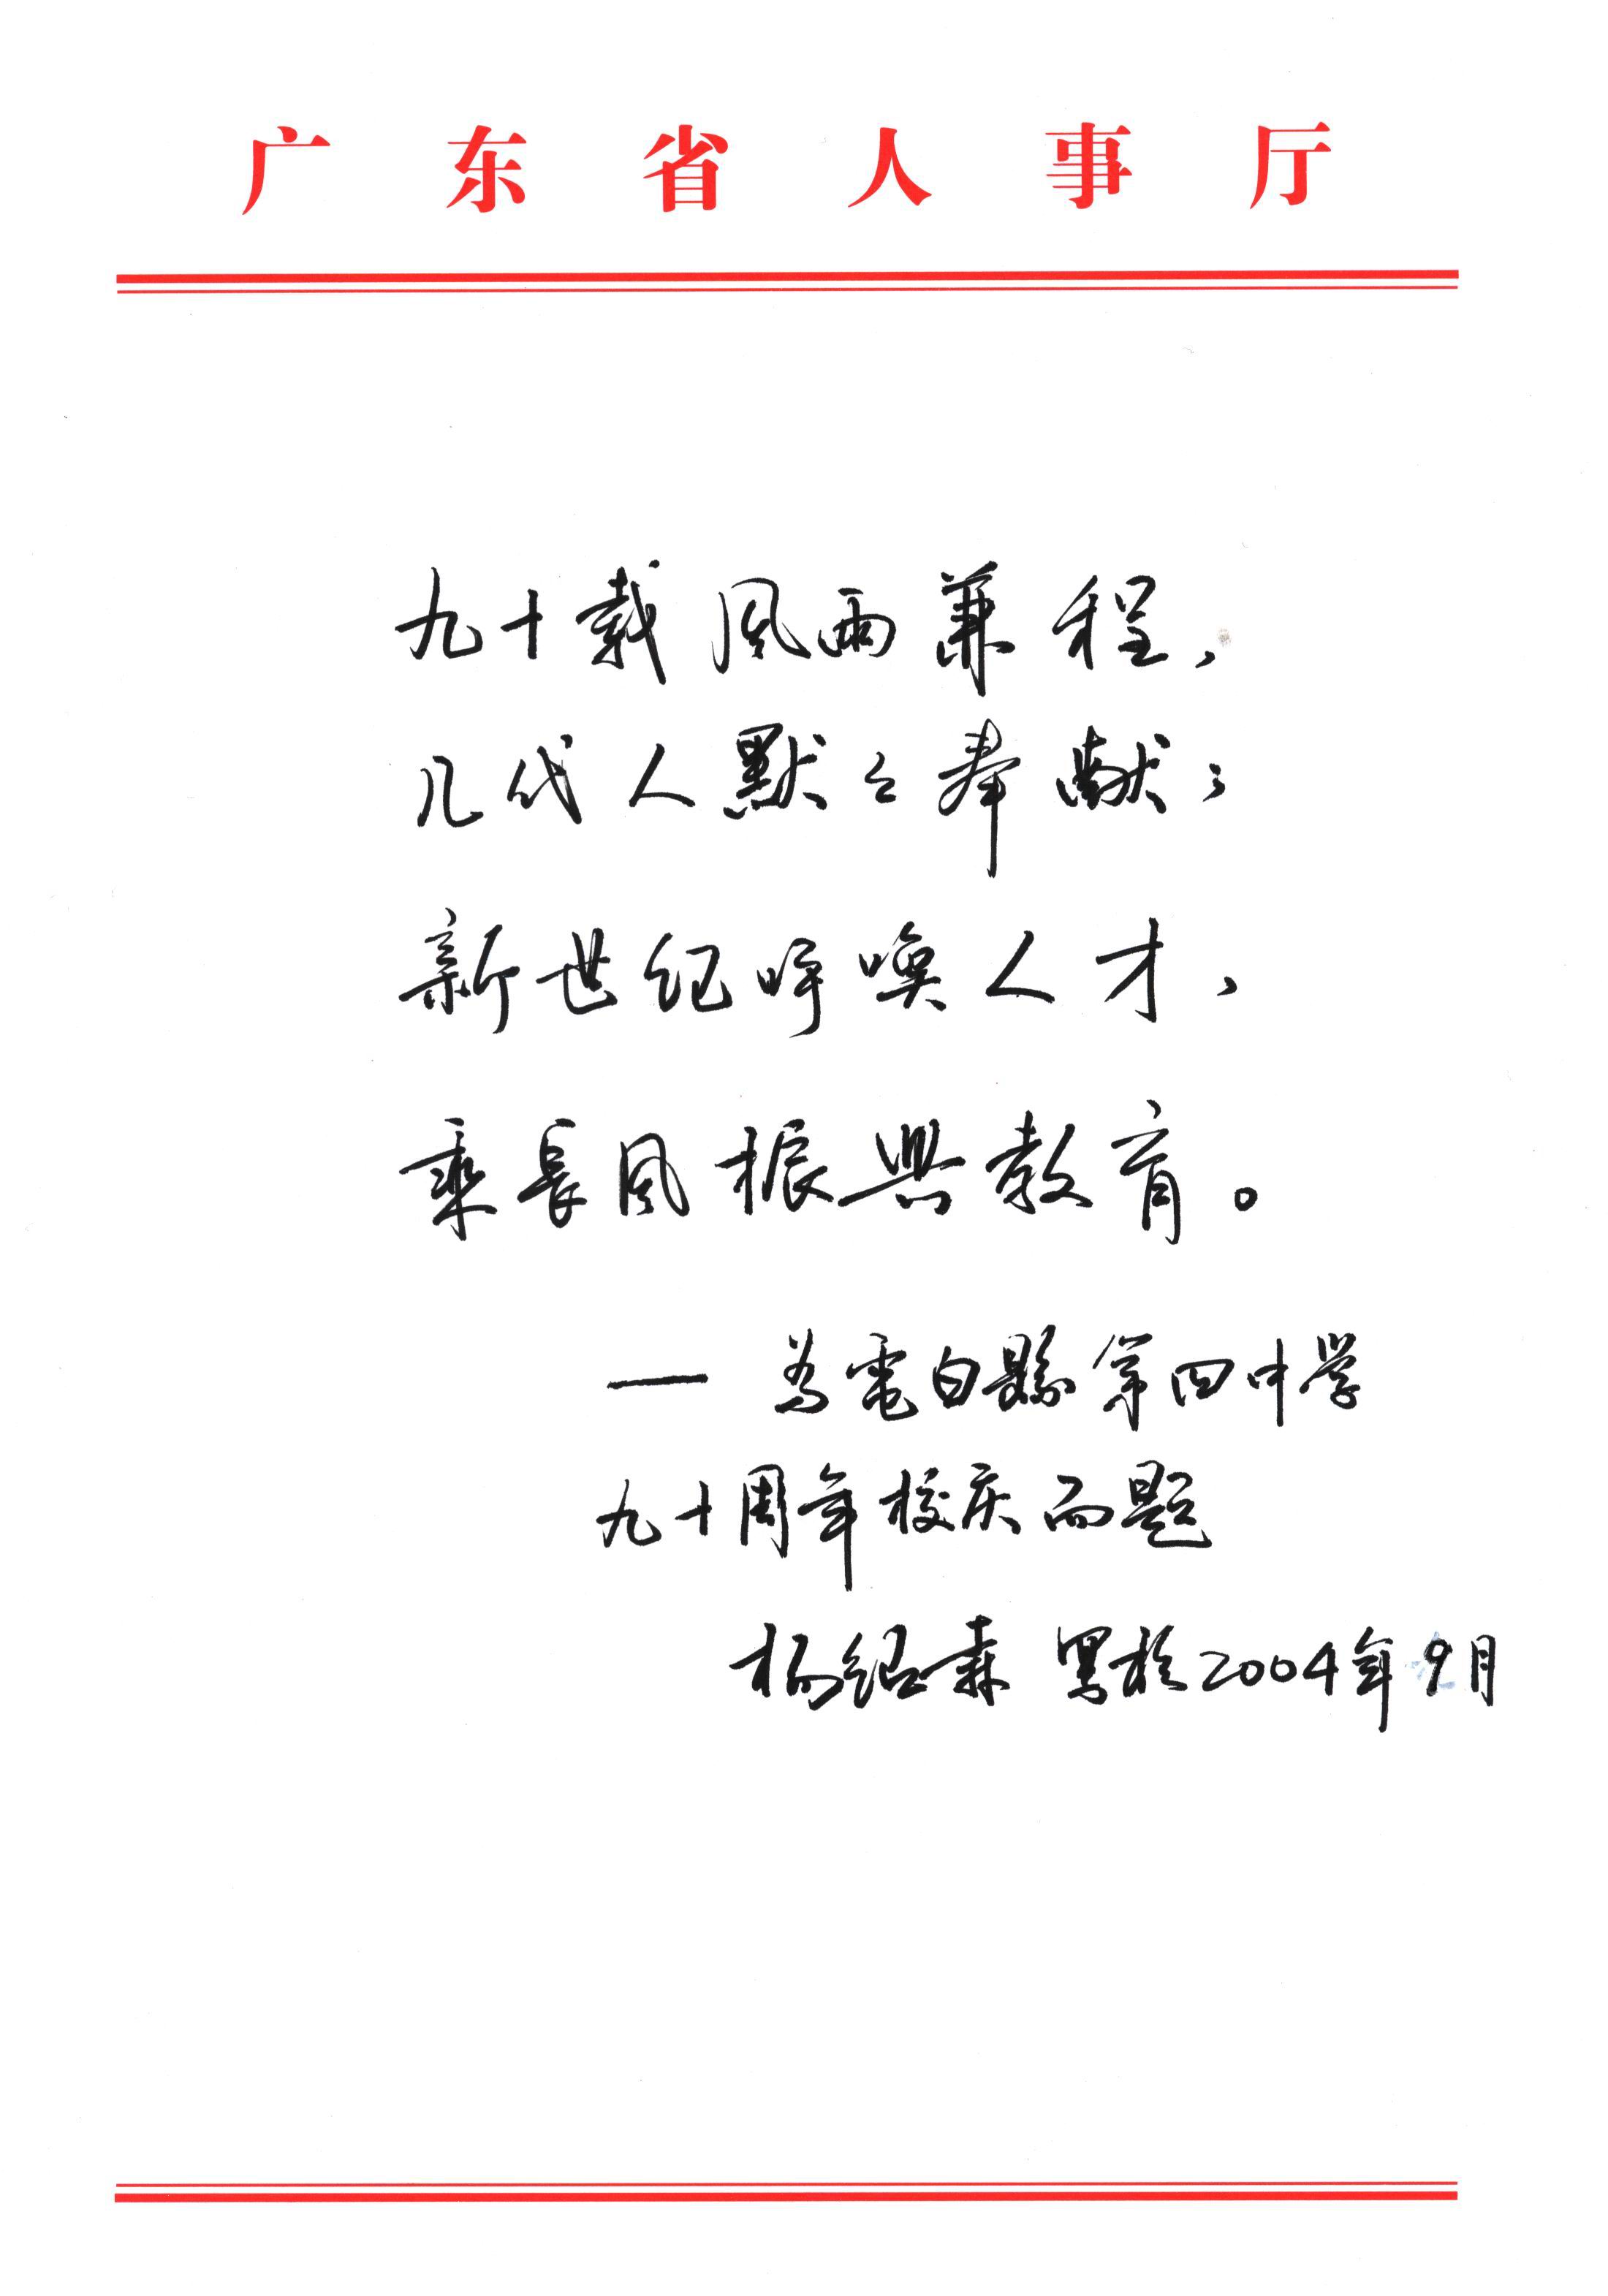 广东省人事厅
九十载風雨兼程，
几代人默々奉献；
新世纪呼唤人才，
乘長风振興教育。
— 为電白縣第四中学
九十周年校庆而题
杨绍森 写於2004年9月